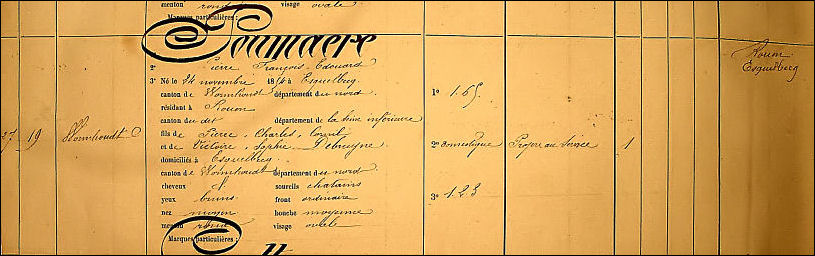 menton rond visage ovale
Marques particulières :
Soumaere
2° Pierre François Edouard
3° Né le 24 novembre 18 à Esquelbecq
canton de Wormhoudt département du nord
résidant à Rouen
canton du dit département de la Seine inférieure
fils de Pierre, Charles, Cornil
et de Victoire, Sophie Debruyne
domiciliés à Esquelbecq
canton de Wormhoudt département du nord
cheveux d sourcils chatains
yeux bruns front ordinaire
nez moyen bouche moyenne
menton rond visage ovale
Marques particulières :
37 19 Wormhoudt
1° 1.65
2° domestique
3° 1.2.3
Propre au service
1
Rouen
Esquelbecq